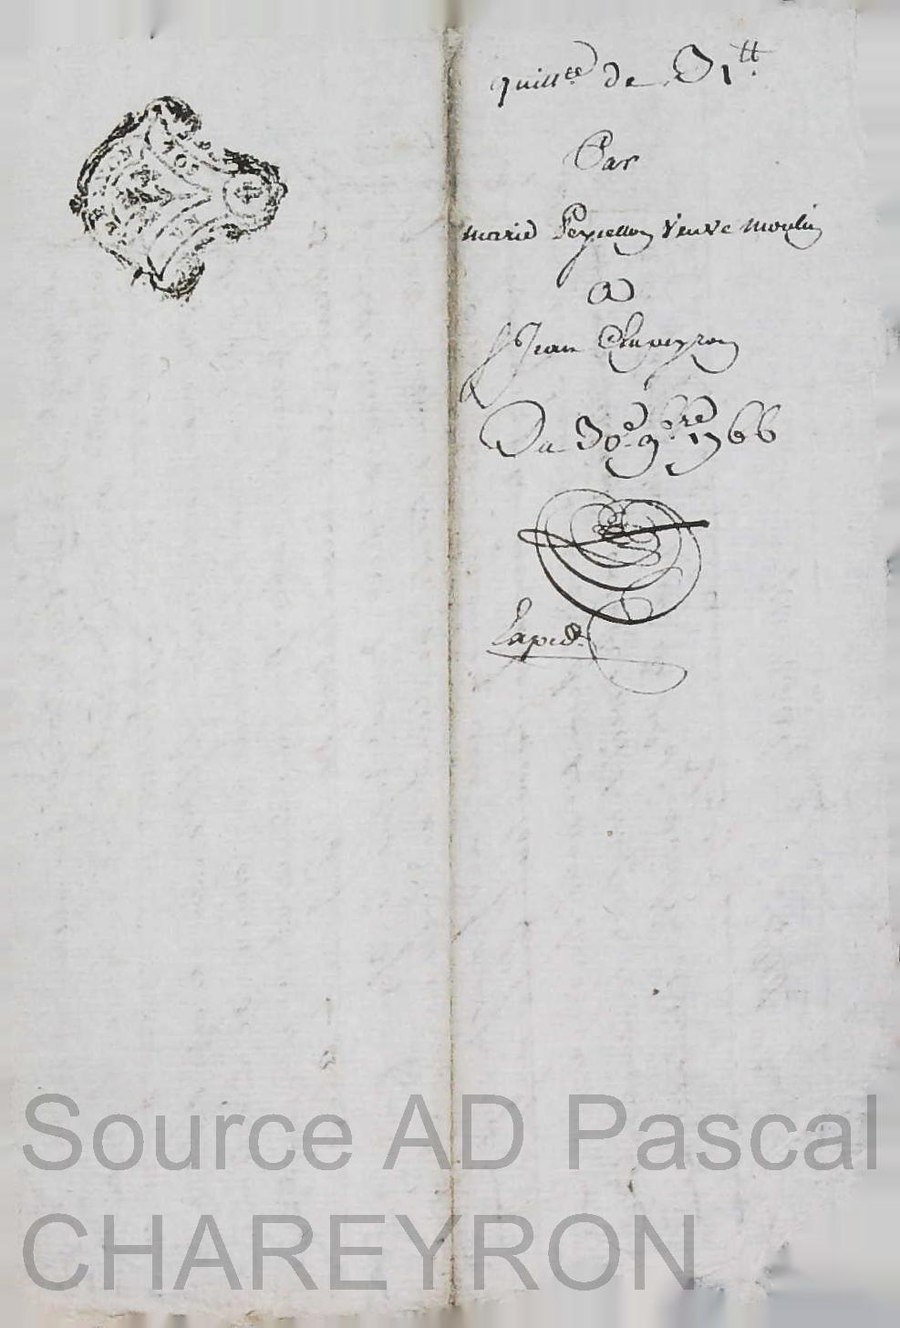 quitt.ce de 31tt.
Par
marie Peyrellon veuve moulin
a
Sr Jean Chapeyron
Du 30e 9bre 1766
Source AD Pascal
CHAREYRON